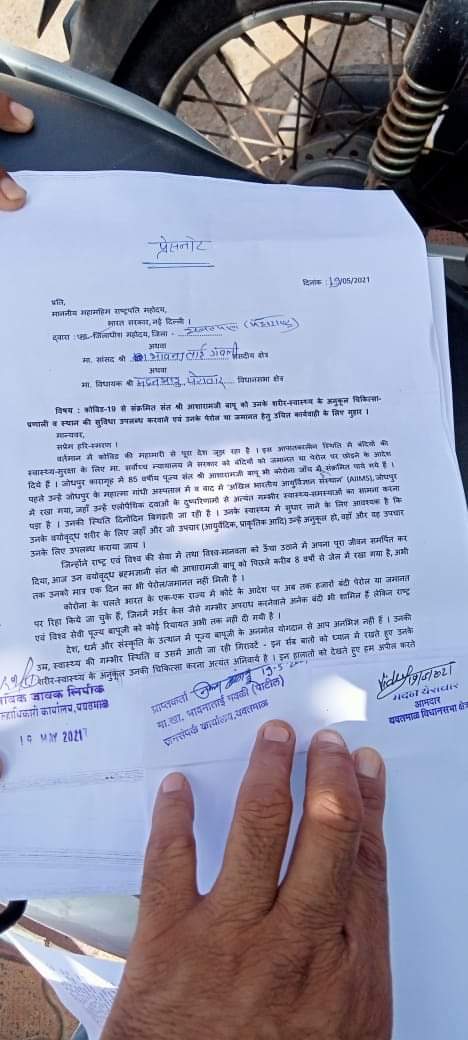 प्रेसनोट
दिनांक : 19/05/2021
प्रति,
माननीय महामहिम राष्ट्रपति महोदय,
भारत सरकार, नई दिल्ली ।
द्वारा : जिलाधीश महोदय, जिला - यवतमाळ (महाराष्ट्र)
अथवा
मा. सांसद श्री भावनाताई गवळी संसदीय क्षेत्र
अथवा
मा. विधायक श्री मदनभाऊ येरावार विधानसभा क्षेत्र
विषय : कोविड-19 से संक्रमित संत श्री आशारामजी बापू को उनके शरीर-स्वास्थ्य के अनुकूल चिकित्सा-
प्रणाली व स्थान की सुविधा उपलब्ध करवाने एवं उनके पेरोल या जमानत हेतु उचित कार्यवाही के लिए गुहार ।
मान्यवर,
सप्रेम हरि-स्मरण ।
वर्तमान में कोविड की महामारी से पूरा देश जूझ रहा है । इस आपातकालीन स्थिति में बंदियों की
स्वास्थ्य-सुरक्षा के लिए मा. सर्वोच्च न्यायालय ने सरकार को बंदियों को जमानत या पेरोल पर छोड़ने के आदेश
दिये हैं । जोधपुर कारागृह में 85 वर्षीय पूज्य संत श्री आशारामजी बापू भी कोरोना जाँच में संक्रमित पाये गये हैं ।
पहले उन्हें जोधपुर के महात्मा गांधी अस्पताल में व बाद में 'अखिल भारतीय आयुर्विज्ञान संस्थान' (AIIMS), जोधपुर
में रखा गया, जहाँ उन्हें एलोपैथिक दवाओं के दुष्परिणामों से अत्यंत गम्भीर स्वास्थ्य-समस्याओं का सामना करना
पड़ा है । उनकी स्थिति दिनोंदिन बिगड़ती जा रही है । उनके स्वास्थ्य में सुधार लाने के लिए आवश्यक है कि
उनके वयोवृद्ध शरीर के लिए जहाँ और जो उपचार (आयुर्वेदिक, प्राकृतिक आदि) उन्हें अनुकूल हो, वहाँ और वह उपचार
उनके लिए उपलब्ध कराया जाय ।
जिन्होंने राष्ट्र एवं विश्व की सेवा में तथा विश्व-मानवता को ऊँचा उठाने में अपना पूरा जीवन समर्पित कर
दिया, आज उन वयोवृद्ध ब्रह्मज्ञानी संत श्री आशारामजी बापू को पिछले करीब 8 वर्षों से जेल में रखा गया है, अभी
तक उनको मात्र एक दिन का भी पेरोल/जमानत नहीं मिली है ।
कोरोना के चलते भारत के एक-एक राज्य में कोर्ट के आदेश पर अब तक हजारों बंदी पेरोल या जमानत
पर रिहा किये जा चुके हैं, जिनमें मर्डर केस जैसे गम्भीर अपराध करनेवाले अनेक बंदी भी शामिल हैं लेकिन राष्ट्र
एवं विश्व सेवी पूज्य बापूजी को कोई रियायत अभी तक नहीं दी गयी है ।
देश, धर्म और संस्कृति के उत्थान में पूज्य बापूजी के अनमोल योगदान से आप अनभिज्ञ नहीं हैं । उनकी
उम्र, स्वास्थ्य की गम्भीर स्थिति व उसमें आती जा रही गिरावट - इन सब बातों को ध्यान में रखते हुए उनके
शरीर-स्वास्थ्य के अनुकूल उनकी चिकित्सा करना अत्यंत अनिवार्य है । इन हालातों को देखते हुए हम अपील करते
आवक जावक लिपीक
कार्यालय, यवतमाळ
19 MAY 2021
प्राप्तकर्ता 19-5-
मा.खा. भावनाताई गवळी (पाटील)
जनसंपर्क कार्यालय, यवतमाळ
मदन येरावार
आमदार
यवतमाळ विधानसभा क्षेत्र